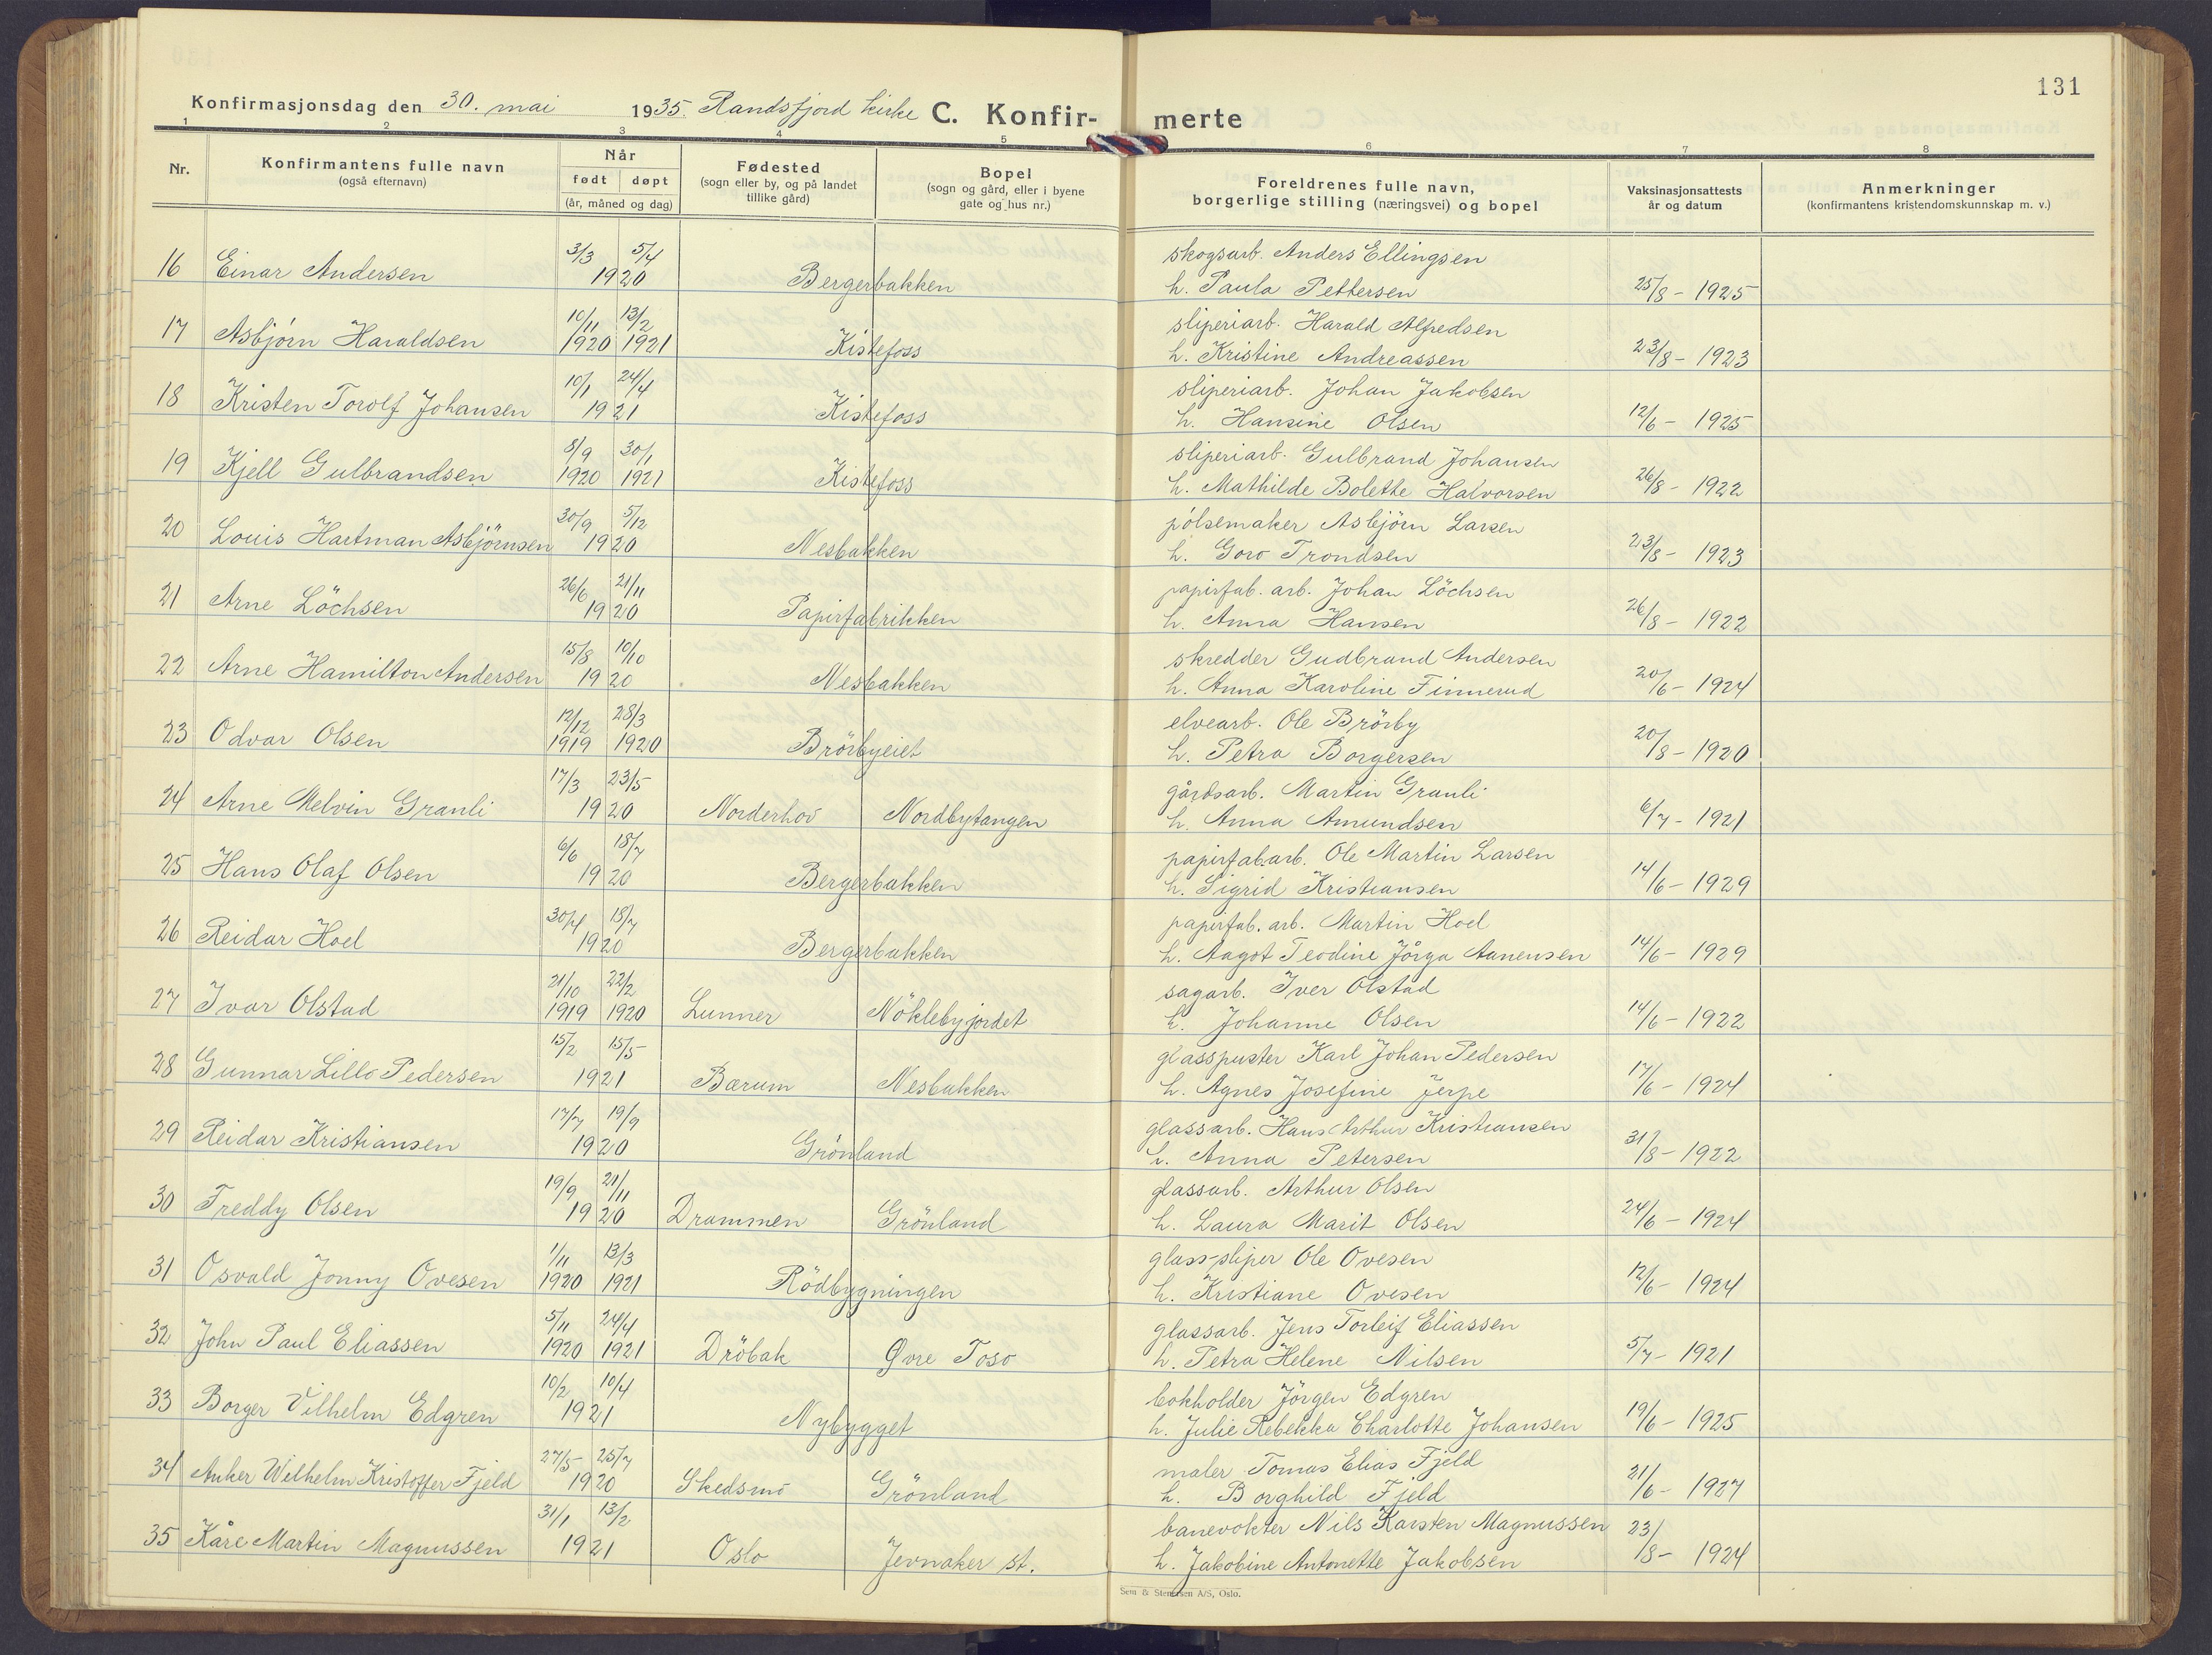 131
Konfirmasjonsdag den 30. mai 1935. Randsfjord kirke C. Konfir- merte
1 2 3 4 5 6 7 8
Nr.
Konfirmantens fulle navn
(også efternavn)
Når
født døpt
(år, måned og dag)
Fødested
(sogn eller by, og på landet
tillike gård)
Bopel
(sogn og gård, eller i byene
gate og hus nr.)
Foreldrenes fulle navn,
borgerlige stilling (næringsvei) og bopel
Vaksinasjonsattests
år og datum
Anmerkninger
(konfirmantens kristendomskunnskap m. v.)
3/3 5/4 skogsarb. Anders Ellingsen
16 Einar Andersen 1920 Bergerbakken h. Paula Pettersen 25/8 - 1925
10/11 13/2 sliperiarb. Harald Alfredsen
17 Asbjørn Haraldsen 1920 1921 Kistefoss h. Kristine Andreassen 23/8 - 1923
10/1 24/4 sliperiarb. Johan Jakobsen
18 Kristen Torolf Johansen 1921 Kistefoss h. Hansine Olsen 12/6 - 1925
8/9 30/1 sliperiarb. Gulbrand Johansen
19 Kjell Gulbrandsen 1920 1921 Kistefoss h. Mathilde Bolette Halvorsen 26/8 - 1922
30/9 5/12 pölsemaker Asbjörn Larsen
20 Louis Hartman Asbjörnsen 1920 Nesbakken h. Goro Trondsen 23/8 - 1923
26/6 21/11 papirfab. arb. Johan Löchsen
21 Arne Löchsen 1920 Papirfabrikken h. Anna Hansen 26/8 - 1922
15/8 10/10 skredder Gudbrand Andersen
22 Arne Hamilton Andersen 1920 Nesbakken h. Anna Karoline Finnerud 20/6 - 1924
12/12 28/3 elvearb. Ole Brörby
23 Odvar Olsen 1919 1920 Brörbyeiet h. Petra Borgersen 20/8 - 1920
17/3 23/5 gårdsarb. Martin Granli
24 Arne Melvin Granli 1920 Norderhov Nordbytangen h. Anna Amundsen 6/7 - 1921
6/6 18/7 papirfab.arb. Ole Martin Larsen
25 Hans Olaf Olsen 1920 Bergerbakken h. Sigrid Kristiansen 14/6 - 1929
30/4 18/7 papirfab. arb. Martin Hoel
26 Reidar Hoel 1920 Bergerbakken h. Aagot Teodine Jörga Aanensen 14/6 - 1929
21/10 22/2 sagarb. Iver Olstad
27 Ivar Olstad 1919 1920 Lunner Nöklebyjordet h. Johanne Olsen 14/6 - 1922
15/2 15/5 glasspuster Karl Johan Pedersen
28 Gunnar Lillo Pedersen 1921 Bærum Nesbakken h. Agnes Josefine Jerpe 17/6 - 1924
17/7 19/9 glassarb. Hans Arthur Kristiansen
29 Reidar Kristiansen 1920 Grönland h. Anna Petersen 31/8 - 1922
19/9 21/11 glassarb. Arthur Olsen
30 Freddy Olsen 1920 Drammen Grönland h. Laura Marit Olsen 24/6 - 1924
1/11 13/3 glass-sliper Ole Ovesen
31 Osvald Jonny Ovesen 1920 1921 Rödbygningen h. Kristiane Ovesen 12/6 - 1924
5/11 24/4 glassarb. Jens Torleif Eliassen
32 John Paul Eliassen 1920 1921 Dröbak Øvre Toso h. Petra Helene Nilsen 5/7 - 1921
10/2 10/4 bokholder Jörgen Edgren
33 Borger Vilhelm Edgren 1921 Nybygget h. Julie Rebekka Charlotte Johansen 19/6 - 1925
27/5 25/7 maler Tomas Elias Fjeld
34 Anker Wilhelm Kristoffer Fjeld 1920 Skedsmo Grönland h. Borghild Fjeld 21/6 - 1927
31/1 13/2 banevokter Nils Karsten Magnussen
35 Kåre Martin Magnussen 1921 Oslo Jevnaker st. h. Jakobine Antonette Jakobsen 23/8 - 1924
Sem & Stenersen A/S, Oslo.